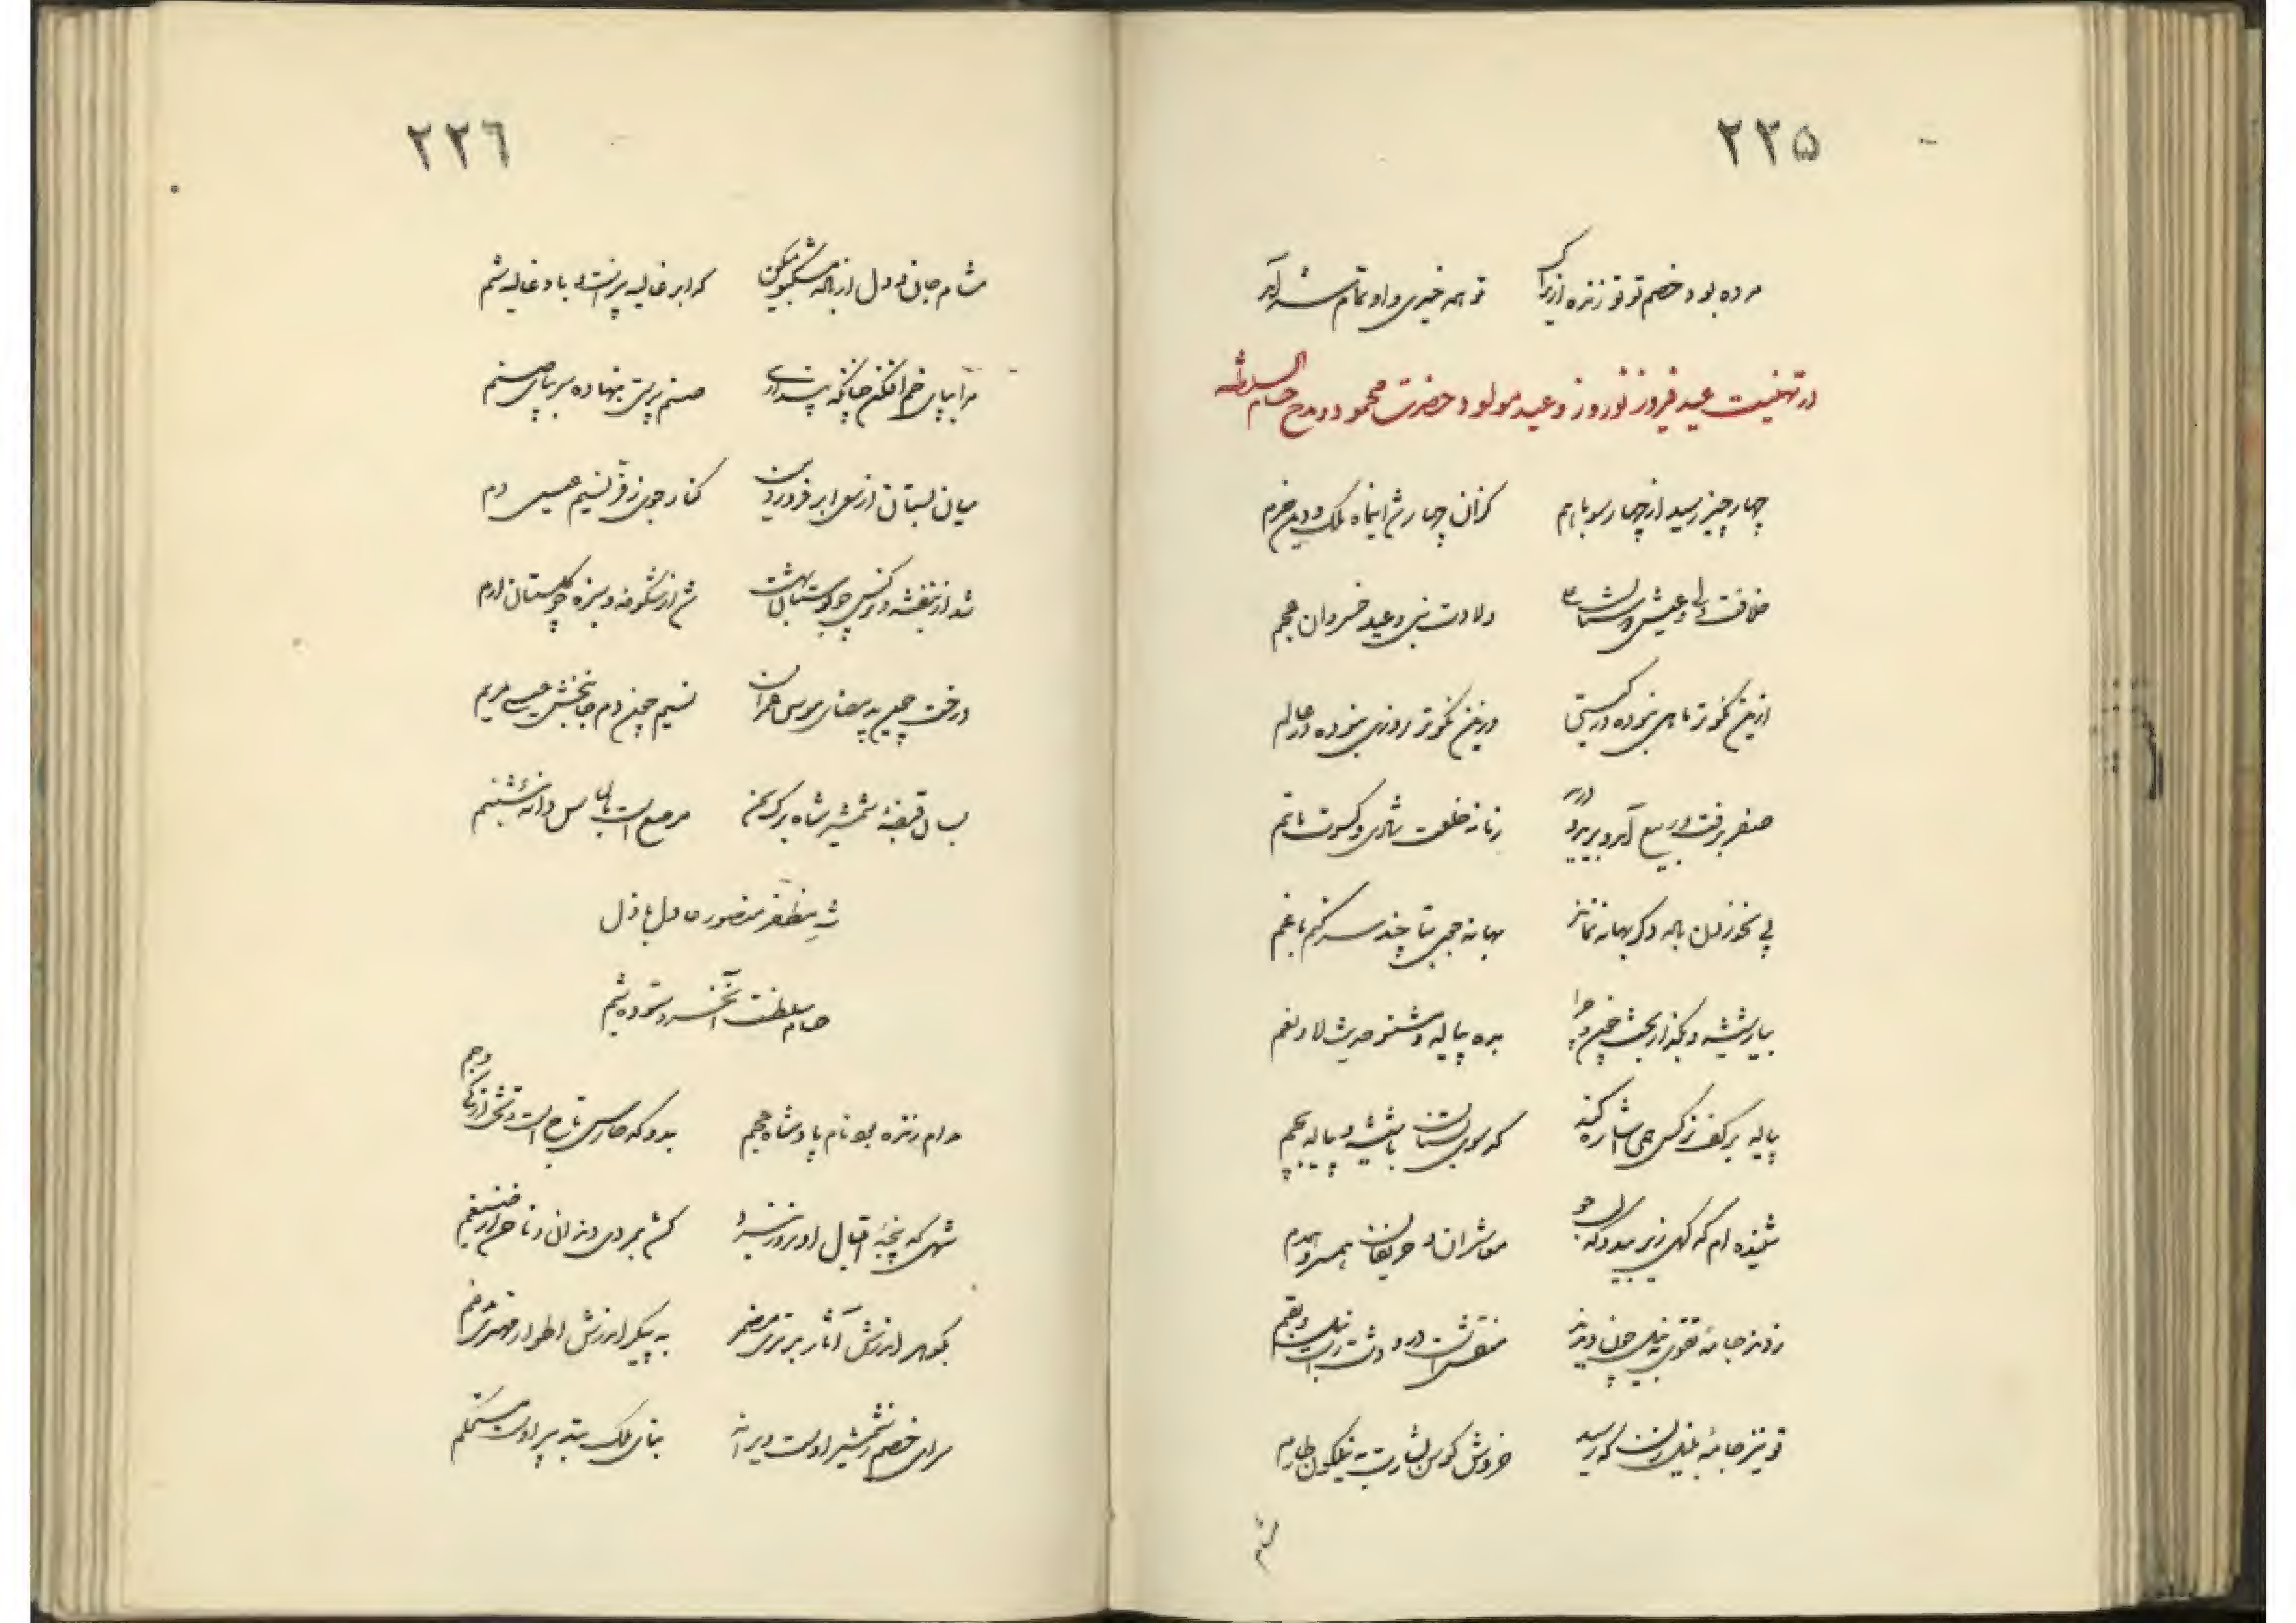 ۲۲۵
مرده بود خصم تو تو زنده ازیراک
تو همه خیری و او تمام شر آمد
در تهنیت عید فیروز نوروز و عید مولود حضرت محمود و مدح حسام السلطنه
چهار چیز رسید از چهار سو با هم
کزان چهار شد ایماه ملک و دین خرم
خلافت ولی و عیش
ولادت نبی و عید خسروان عجم
ازین نکوتر ماهی نبوده در گیتی
وزین نکوتر روزی نبوده در عالم
صفر برفت و ربیع آمد و برید و درید
زمانه خلعت شادی و کسوت ماتم
پی نخوردن باده دگر بهانه نماند
بهانه جویی تا چند سر کنم با غم
بیار شیشه و بگذار بحث چون و چرا
بده پیاله و مشنو حدیث لا و نعم
پیاله بر کف نرگس همی اشاره کند
که سوی بستان با شیشه و پیاله بچم
شنیده ام که
معاشران و حریفان همسر و همدم
زدند جامه تقوی به نیل چون دیدند
منقش است در و دشت
تو نیز جامه به نیل که رسید
خروش کوس بشارت به نیلگون طارم
مشام
۲۲٦
مشام جان و دل از باده مشکبو میکن
که ابر غالیه بیز است و باد غالیه شم
مرا بپای خم افکن چنانکه پنداری
صنم پرستی بنهاده سر بپای صنم
میان بستان از سعی ابر فروردین
کنار جوی ز فر نسیم عیسی دم
شد از بنفشه و نرگس چو بوستان بهشت
شد از شکوفه و سبزه چو گلستان ارم
درخت چمن ید بیضای موسی عمران
نسیم چمن دم جانبخش عیسی مریم
بسان قبضه شمشیر شاه برگ سمن
مرصع است بالماس دانه شبنم
شه مظفر منصور عادل باذل
حسام سلطنت آن خسرو ستوده شیم
مدام زنده بود نام پادشاه عجم
بدو که حارس تاج است و تخت از کی و جم
شهی که پنجه اقبال او بروز نبرد
کند بمردی دندان و ناخن از ضیغم
بگوهر اندرش آثار برتری مضمر
به پیکر اندرش اطوار مهتری مدغم
سرای خصم از شمشیر اوست ویرانه
بنای ملک بتدبیر اوست مستحکم